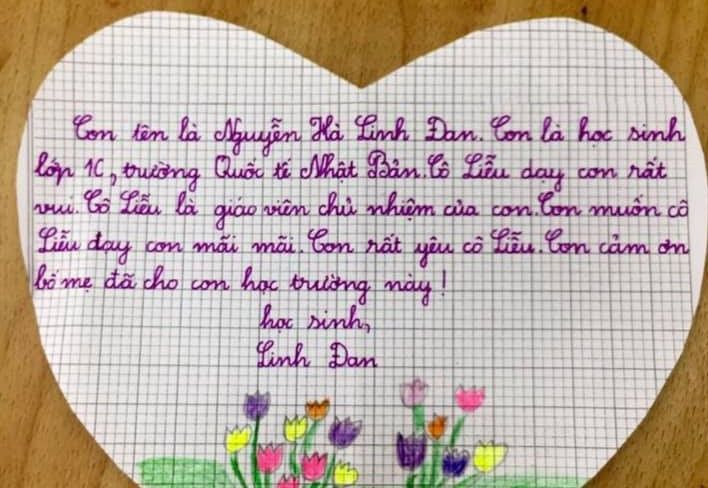 Con tên là Nguyễn Hà Linh Đan. Con là học sinh
lớp 1C, trường Quốc tế Nhật Bản. Cô Liễu dạy con rất
vui. Cô Liễu là giáo viên chủ nhiệm của con. Con muốn cô
Liễu dạy con mãi mãi. Con rất yêu cô Liễu. Con cảm ơn
bố mẹ đã cho con học trường này!
học sinh,
Linh Đan